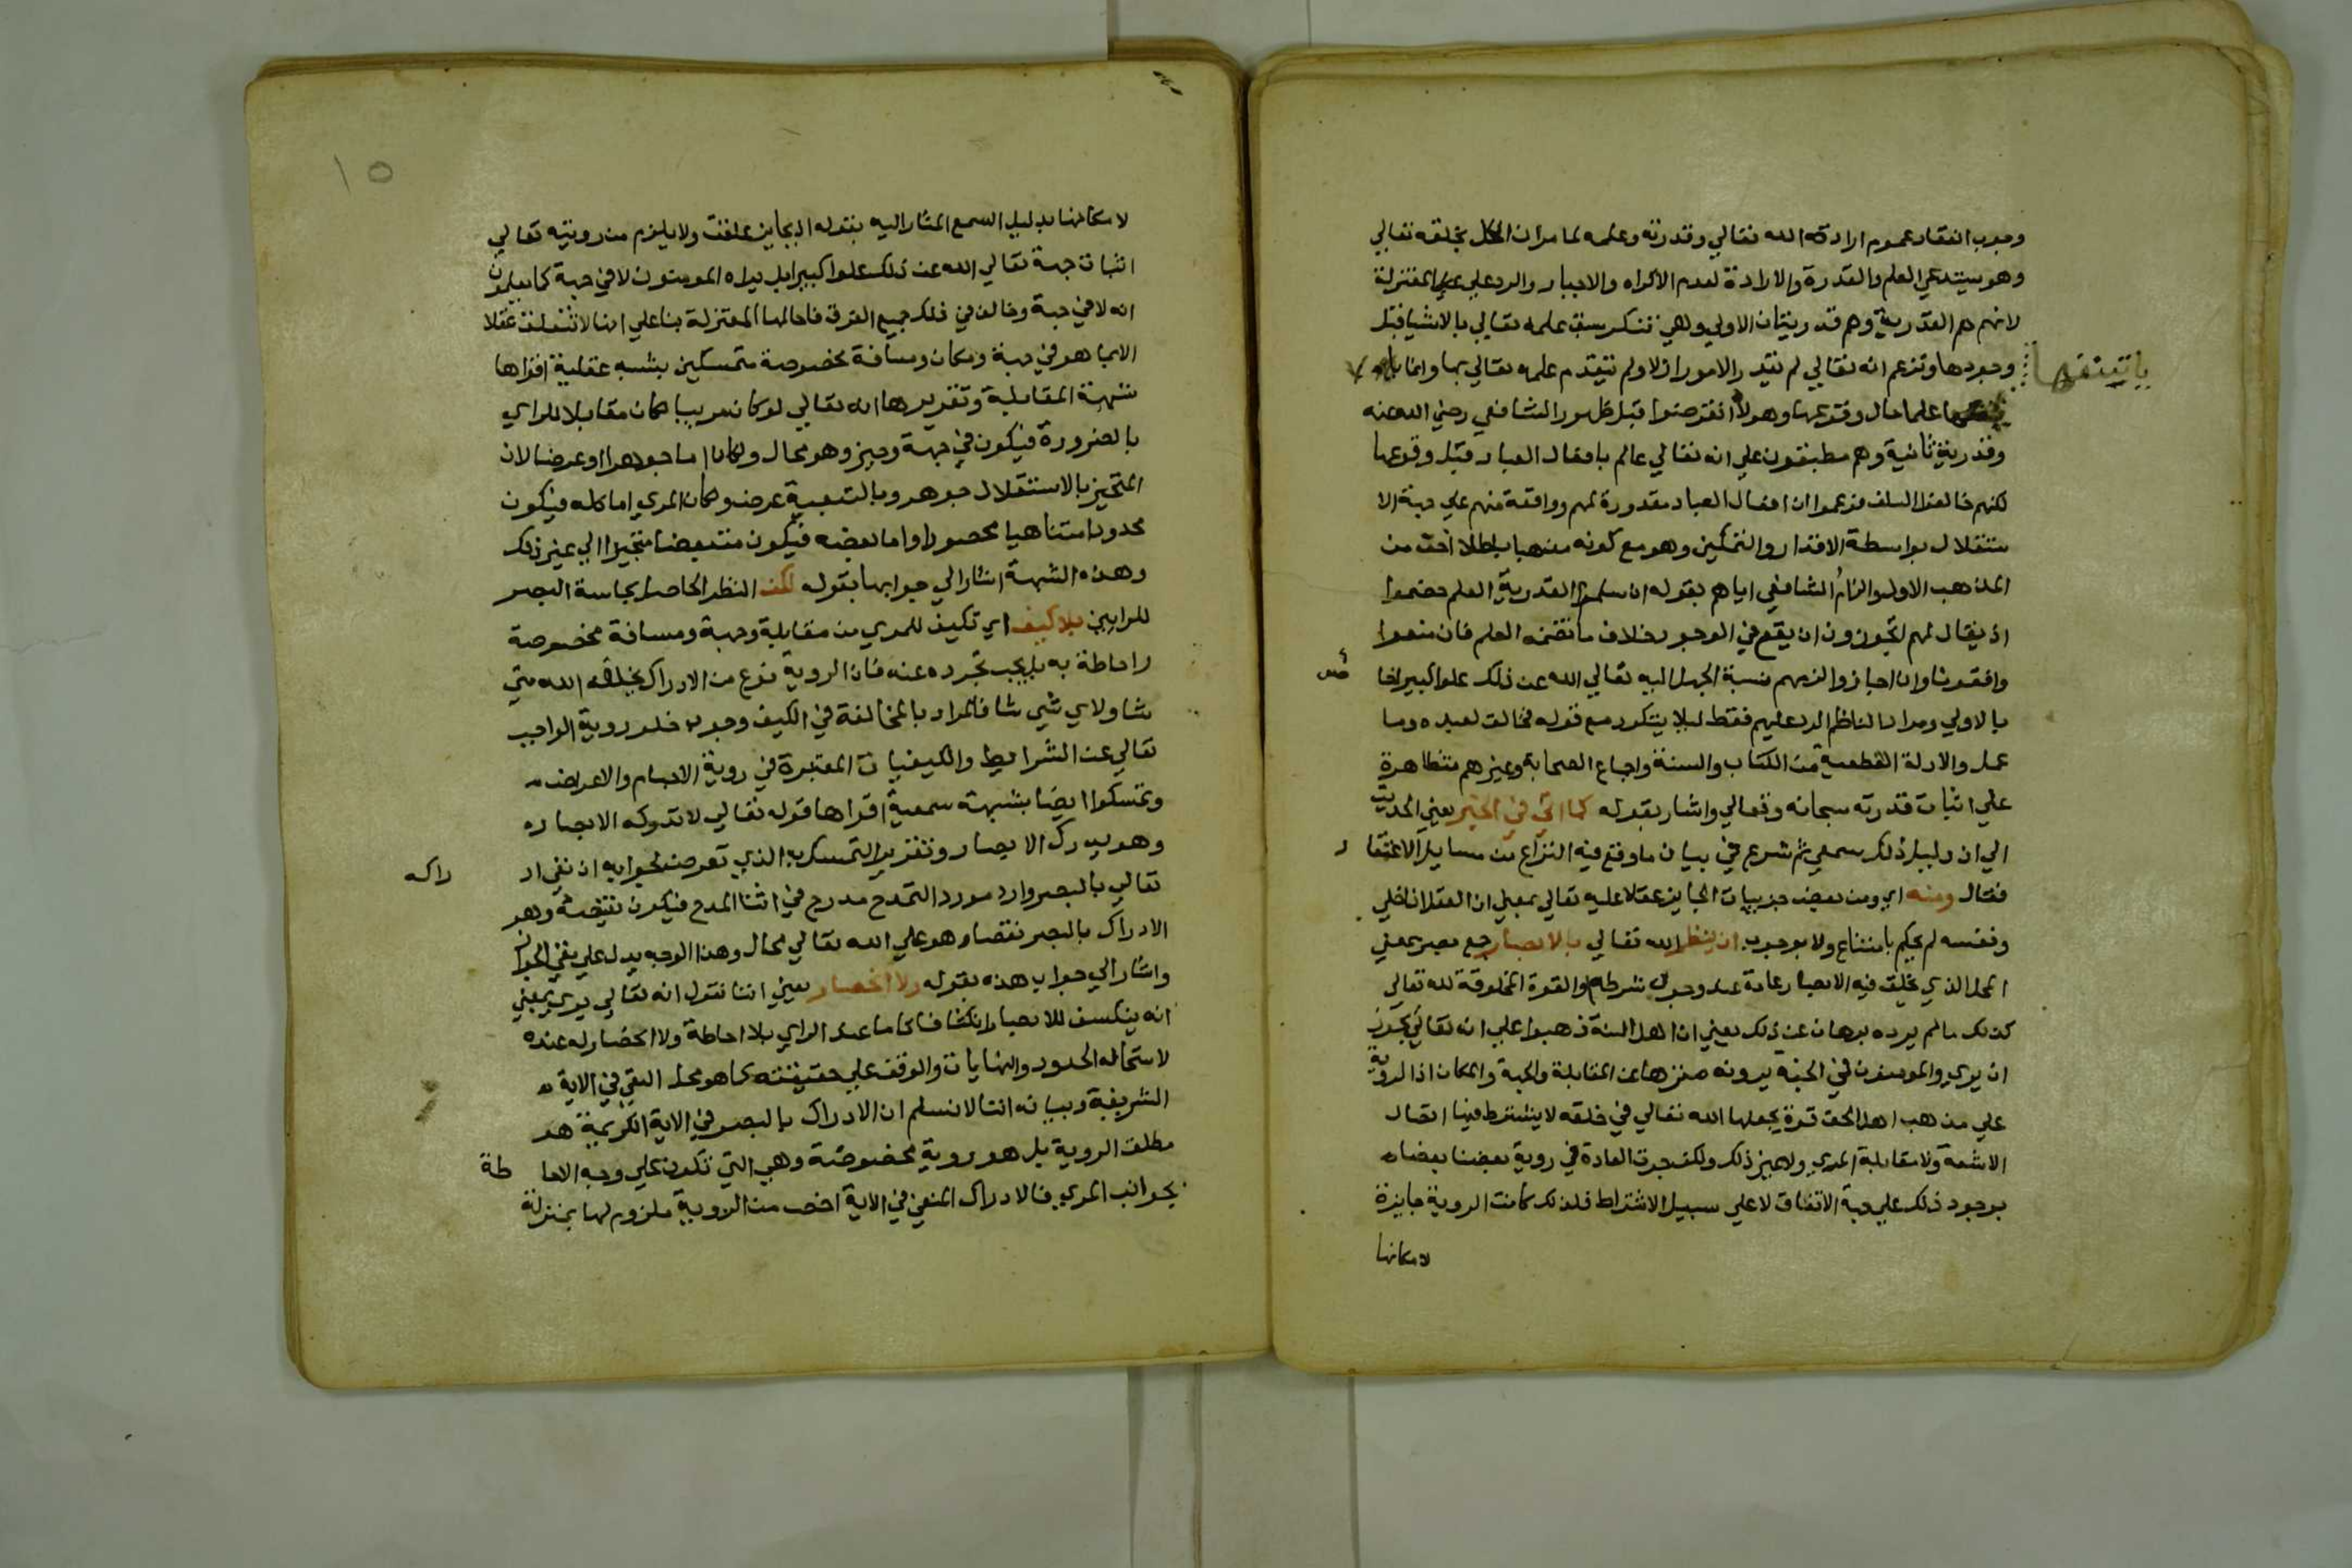 وجوب انعقاد عموم ارادة الله تعالي وقدرته وعلمه لما مر ان الكل بخلقه تعالي
وهو يستدعي العلم والقدرة والارادة لعدم الاكراه والاجبار والرد علي المعتزلة
لانهم هم القدرية وهم قدريتان الاولي وهي تنكر سبق علمه تعالي بالاشيا قبل
وجودها وتزعم انه تعالي لم يقدر الامور ازلا ولم يتقدم علمه تعالي بها وانما
علما حال وقوعها وهولا انقرضوا قبل ظهور الشافعي رضي الله عنه
وقدرية ثانية وهم مطبقون علي انه تعالي عالم بافعال العباد قبل وقوعها
لكنهم خالفوا السلف فزعموا ان افعال العباد مقدورة لهم وواقعة منهم علي جهة الا
ستقلال بواسطة الاقدار والتمكين وهو مع كونه مذهبا باطلا اخف من
المذهب الاول والزام الشافعي اياهم بقوله ان سلموا القدرية العلم خصموا
اذ يقال لهم اتجوزون ان يقع في الوجود خلاف ما تضمنه العلم فان منعوا
وافقونا وان اجازوا لزمهم نسبة الجهل اليه تعالي الله عن ذلك علوا كبيرا
بالاولي ومراد الناظم الرد عليهم فقط ليلا يتكرر مع قوله فخالق لعبده وما
عمل والادلة القطعية من الكتاب والسنة واجماع الصحابة وغيرهم متظاهرة
علي اثبات قدرته سبحانه وتعالي واشار بقوله كما اتي في الخبر يعني الحديث
الي ان دليل ذلك سمعي ثم شرع في بيان ما وقع فيه النزاع من مسايل الاعتقا د
فقال ومنه اي ومن بعض جزييات الجايز عقلا عليه تعالي بمعني ان العقل اذا خلي
ونفسه لم يحكم بامتناع ولا بوجوب ان ينظر الله تعالي بالابصار جمع بصر بمعني
المحل الذي يخلق فيه الابصار عادة عند وجود شرطه والقوة المخلوقة لله تعالي
كذلك ما لم يرده برهان عن ذلك يعني ان اهل السنة ذهبوا علي انه تعالي يجوز
ان يري والمومنون في الجنة يرونه منزها عن المقابلة والجهة والمكان اذ الروية
علي مذهب اهل الحق قوة يجعلها الله تعالي في خلقه لا يشترط فيها اتصال
الاشعة ولا مقابلة المري ولا غير ذلك ولكن جرت العادة في روية بعضنا بعضا
بوجود ذلك علي جهة الاتفاق لا علي سبيل الاشتراط فلذلك كانت الروية جايزة
لامكانها
١٥
لامكانها بدليل السمع المشار اليه بقوله اذ بجايز علقت ولا يلزم من رويته تعالي
اثبات جهة تعالي الله عن ذلك علوا كبيرا بل يراه المومنون لا في جهة كما يعلمون
انه لا في جهة وخالف في ذلك جميع الفرق فاحالها المعتزلة بنا علي انها لا تتعلق عقلا
الا بما هو في جهة ومكان ومسافة مخصوصة متمسكين بشبه عقلية اقواها
شبهة المقابلة وتقريرها انه تعالي لو كان مرييا لكان مقابلا للراي
بالضرورة فيكون في جهة وحيز وهو محال ولكان اما جوهرا او عرضا لان
المتحيز بالاستقلال جوهر وبالتبعية عرض ولكان المري اما كله فيكون
محدودا متناهيا محصورا واما بعضه فيكون متبعضا متحيزا الي غير ذلك
وهذه الشبهة اشار الي جوابها بقوله لكن النظر الحاصل بحاسة البصر
للرايين بلا كيف اي تكيف للمري من مقابلة وجهة ومسافة مخصوصة
واحاطة به بل يجب تجرده عنه فان الروية نوع من الادراك يخلقه الله متي
شا ولاي شي شا فالمراد بالمخالفة في الكيف وجوب خلو روية الواجب
تعالي عن الشرايط والكيفيات المعتبرة في روية الاجسام والاعراض
وتمسكوا ايضا بشبهة سمعية اقواها قوله تعالي لا تدركه الابصار
وهو يدرك الابصار وتقرير التمسك به الذي تعرض لجوابه ان نفي اد راكه
تعالي بالبصر وارد مورد التمدح مدرج في اثنا المدح فيكون نقيضه وهو
الادراك بالبصر نقصا وهو علي الله تعالي محال وهذا الوجه يدل علي نفي الجواز
واشار الي جواب هذه بقوله ولا انحصار يعني اننا نقول انه تعالي يري بمعني
انه ينكشف للابصار انكشافا تاما عند الراي بلا احاطة ولا انحصار له عنده
لاستحالة الحدود والنهايات والوقف علي حقيقته كما هو محل النفي في الاية
الشريفة وبيانه اننا لا نسلم ان الادراك بالبصر في الاية الكريمة هو
مطلق الروية بل هو روية مخصوصة وهي التي تكون علي وجه الاحا طة
بجوانب المري فالادراك المنفي في الاية اخص من الروية ملزوم لها بمنزلة